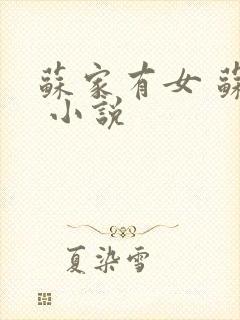 蘇家有女 蘇
小說
夏染雪